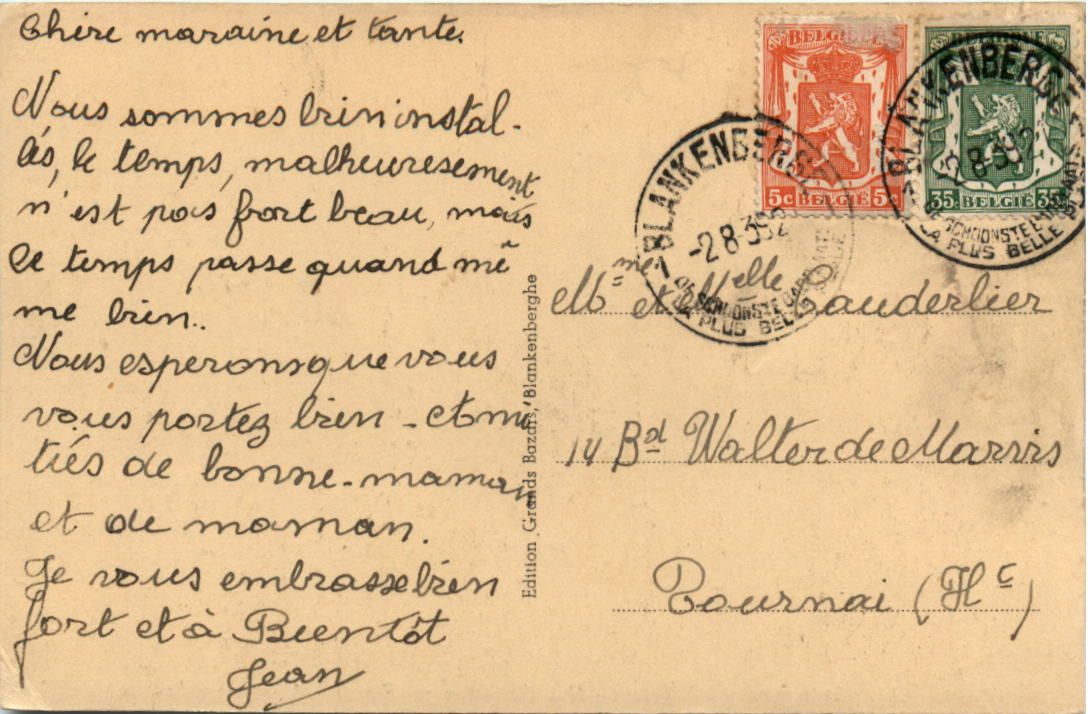 Chère maraine et tante.
Nous sommes bien instal-
lés, le temps, malheuresement
n'est pas fort beau, mais
le temps passe quand mê
me bien..
Nous esperons que vous
vous portez bien - et ami
tiés de bonne-maman
et de maman.
Je vous embrasse bien
fort et à Bientôt
Jean
Edition Grands Bazars, Blankenberghe
BELGIQUE
5c BELGIE 5c
BELGIQUE
35c BELGIE 35c
1 BLANKENBERGE 1
-2 8-39
DE SCHOONSTE
LA PLUS BELLE
BLANKENBERGE
8-39
SCHOONSTE
LA PLUS BELLE
Mme et Melle Cauderlier
14 Bd Walter de Marvis
Tournai (Hc)